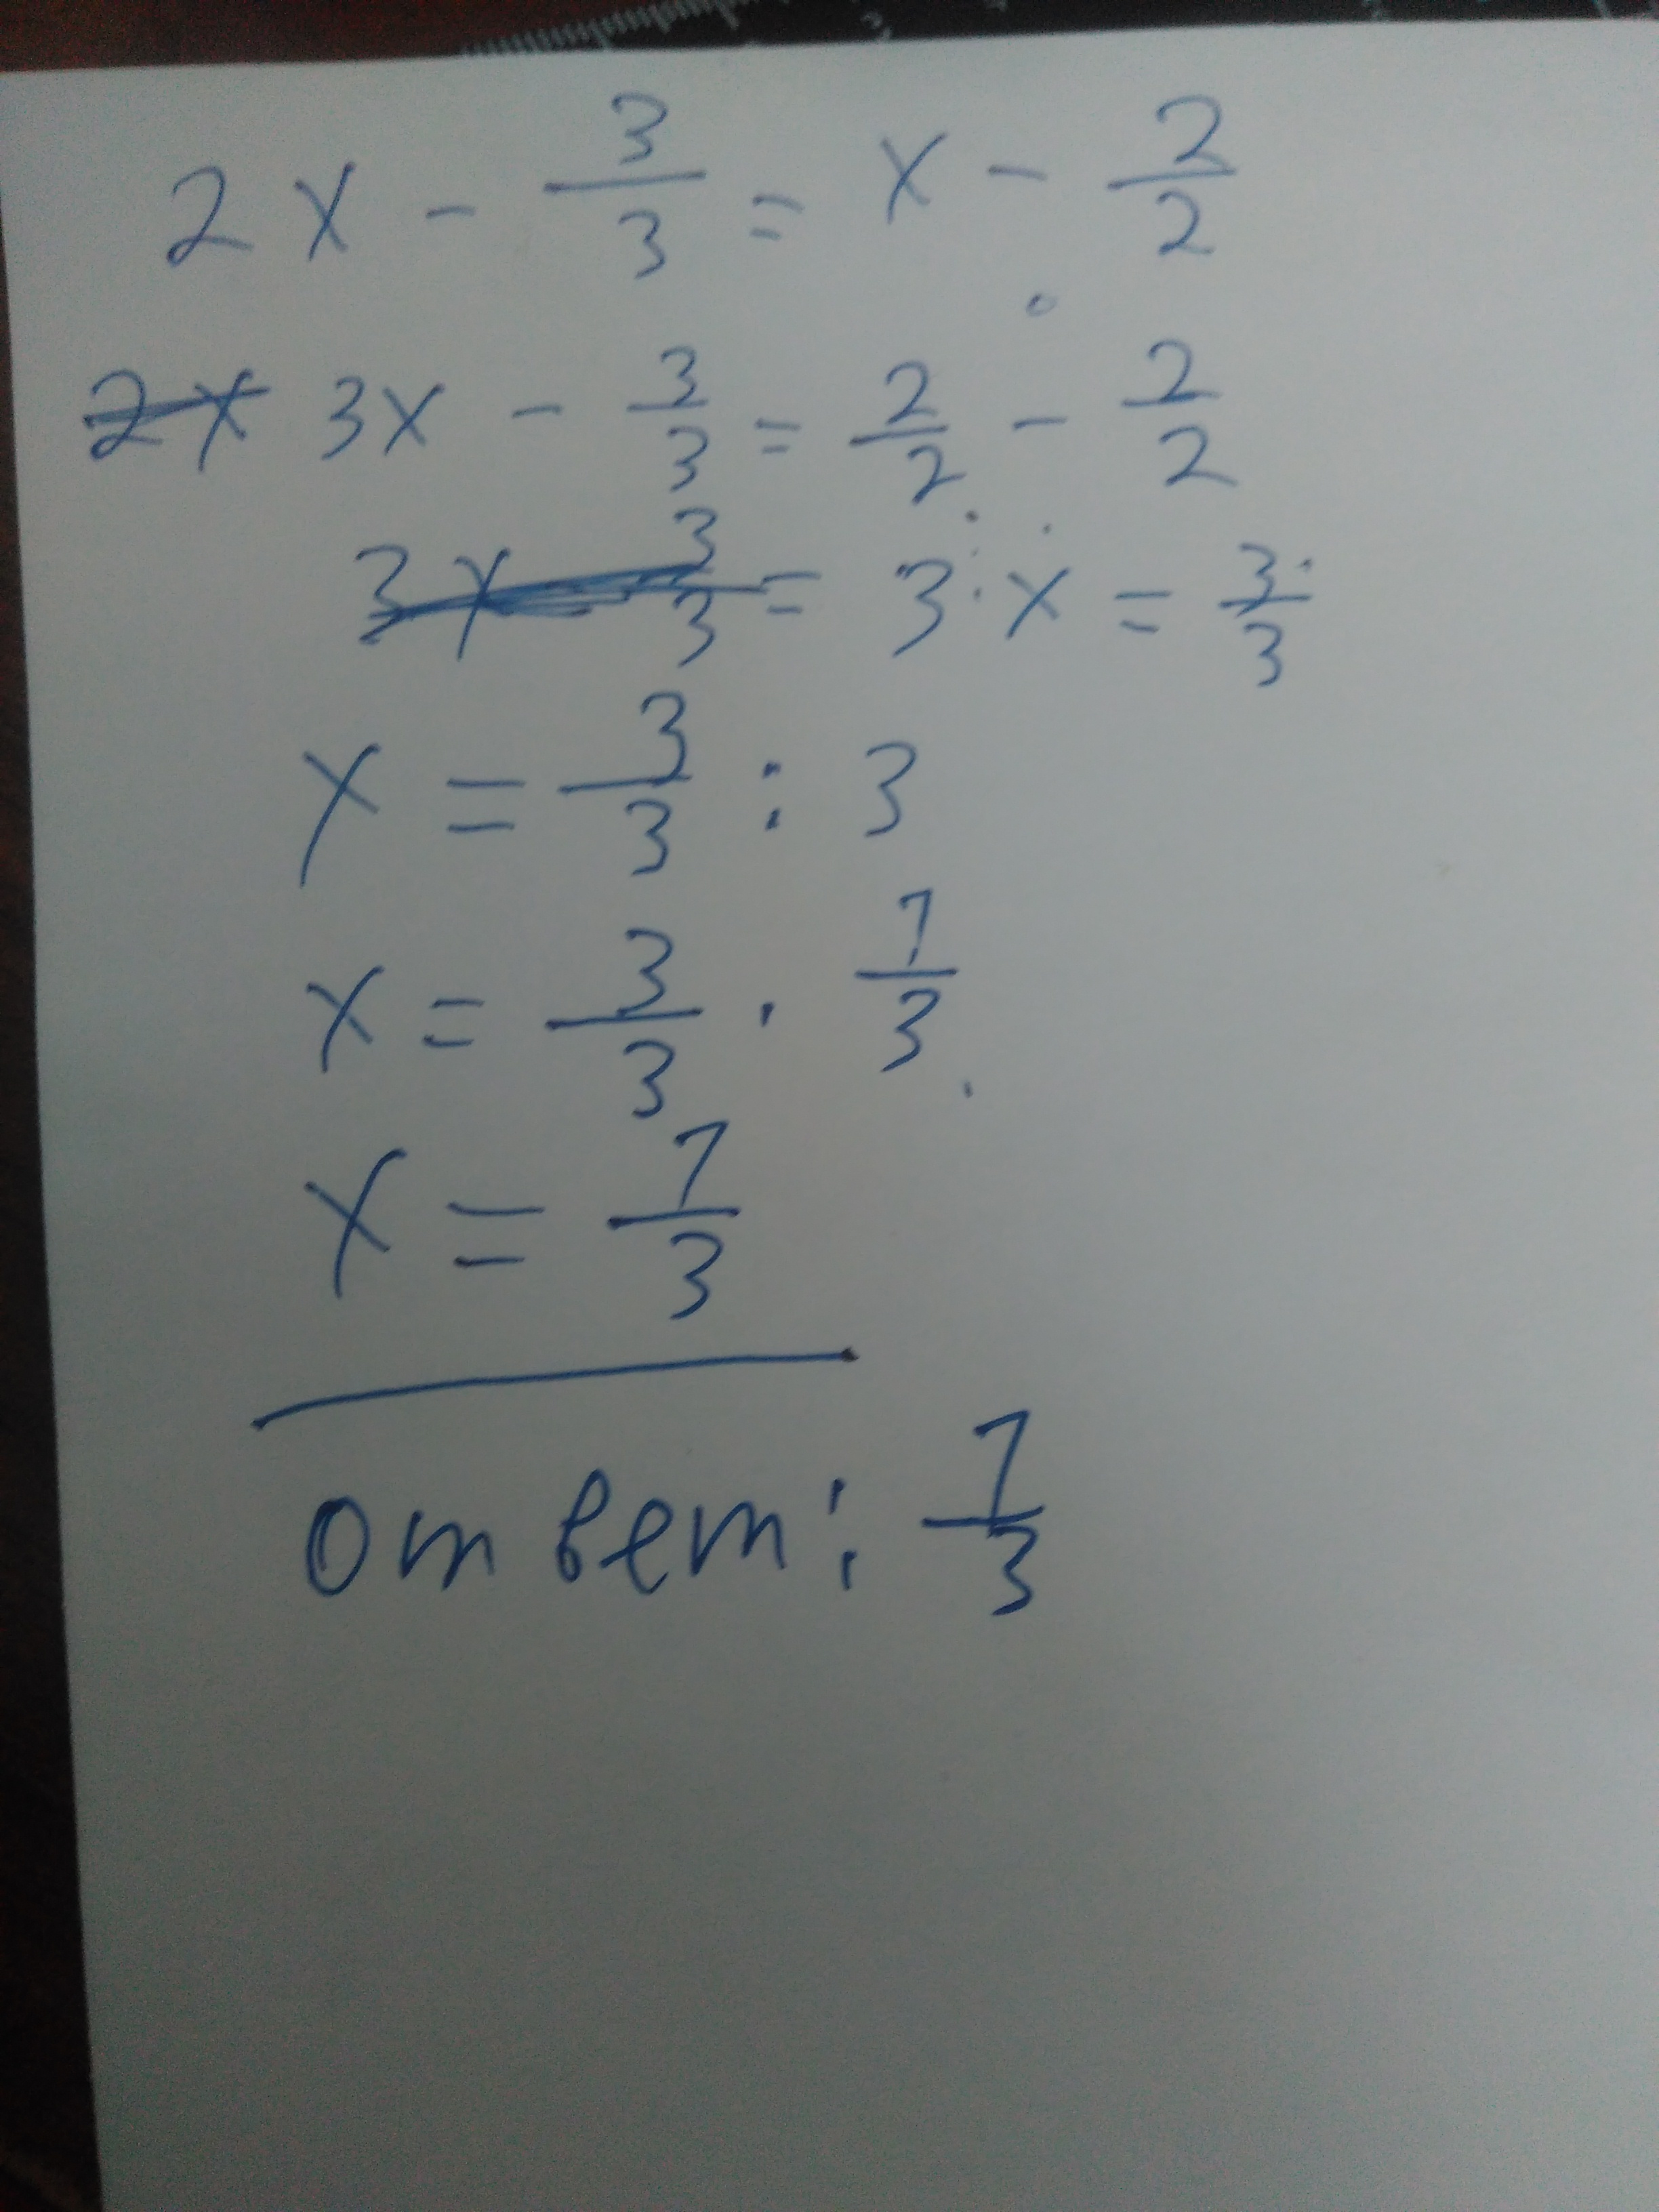 2x - 3/3 = x - 2/2
2x 3x - 3/3 = 2/2 - 2/2
3x - 3/3 = 3 · x = 3/3
x = 3/3 : 3
x = 3/3 · 1/3
x = 1/3
ответ: 1/3